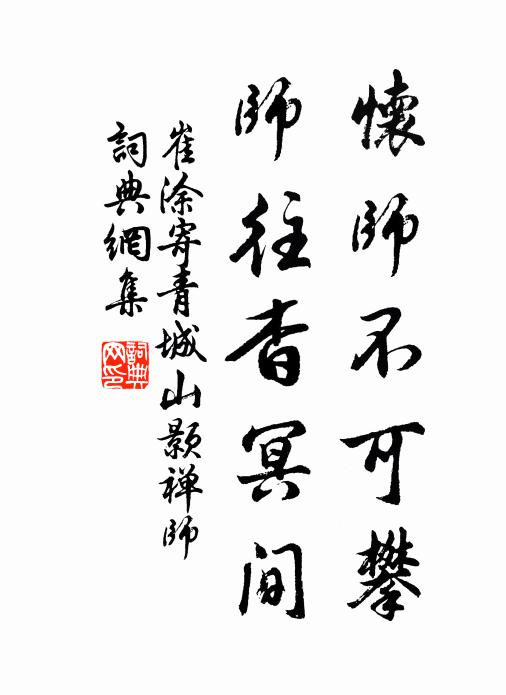 懷師不可攀
師往杳冥間
崔涂寄青城山顥禅師
詞典網集
詞典網印